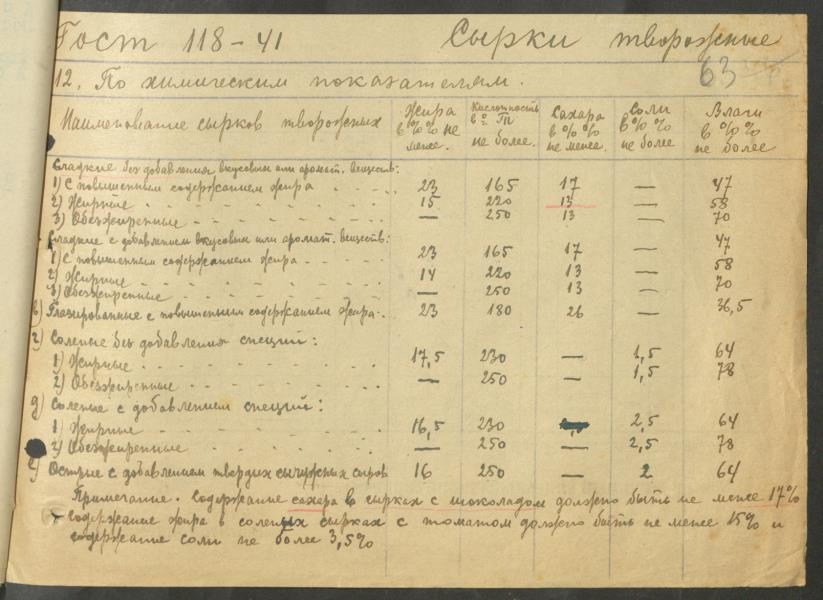 Гост 118-41 Сырки творожные
12. По химическим показателям. 63
Наименование сырков творожных Жира в %% не менее. Кислотность в ° Т не более. Сахара в %% не менее. Соли в %% не более Влаги в %% не более
Сладкие без добавления вкусовых или аромат. веществ:
1) С повышенным содержанием жира 23 165 17 — 47
2) Жирные 15 220 13 — 58
3) Обезжиренные — 250 13 — 70
Сладкие с добавлением вкусовых или аромат. веществ:
1) С повышенным содержанием жира 23 165 17 — 47
2) Жирные 14 220 13 — 58
3) Обезжиренные — 250 13 — 70
в) Глазированные с повышенным содержанием жира 23 180 26 — 36,5
г) Соленые без добавления специй:
1) Жирные 17,5 230 — 1,5 64
2) Обезжиренные — 250 — 1,5 78
д) Соленые с добавлением специй:
1) Жирные 16,5 230 2,5 64
2) Обезжиренные — 250 — 2,5 78
е) Острые с добавлением твердых сычужных сыров 16 250 — 2 64
Примечание. Содержание сахара в сырках с шоколадом должно быть не менее 17%
содержание жира в соленых сырках с томатом должно быть не менее 15% и
содержание соли не более 3,5%